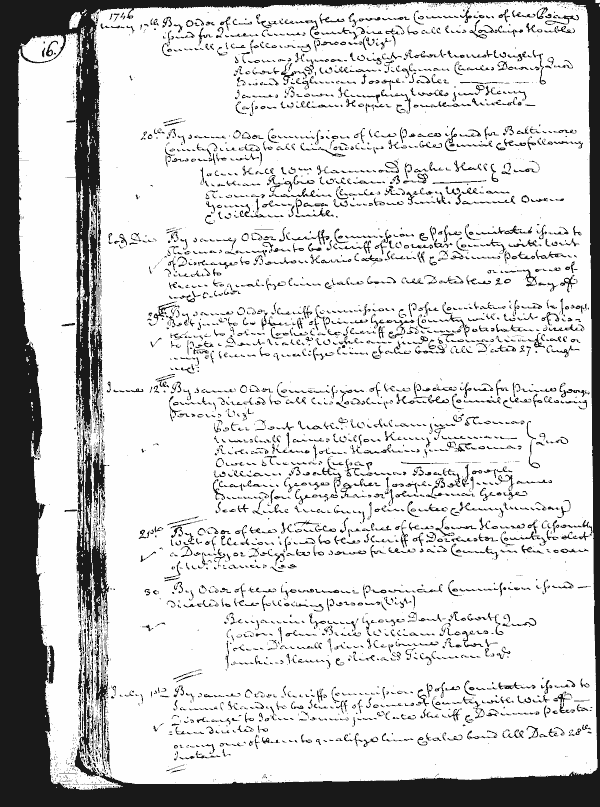 16.
1746
17th By Order of his Excellency the Governor Commission of the Peace
issued for Queen Annes County directed to all his Lordships Honble
Council & the following Persons (Vizt)
Thomas Hynson Wright Robert Norrest Wright
Robert Lloyd William Tilghman Charles Downs Quor
Edward Tilghman Joseph Sudler
James Brown Humphrey Wells junr Henry
Casson William Hopper & Jonathan Nichols
20th By same Order Commission of the Peace issued for Baltimore
County directed to all his Lordships Honble Council & the following
Persons (to wit)
John Hall Wm Hammond Parker Hall Quor
Nathan Rigbie William Bond
Thomas Franklin Charles Ridgeley William
Young John Paca Winstone Smith Samuel Owens
& William Smith.
Eod. Die By same Order Sheriffs Commission & Posse Comitatus issued to
Thomas to be Sheriff of Worcester County with Writ
of Discharge to Benton Harris late Sheriff & Dedimus Potestatem
directed to
or any one of
them to qualify him & take bond All Dated the 20 Day of
next October
29th By same Order Sheriff Commission & Posse Comitatus issued to Joseph
Belt junr to be Sheriff of Prince Georges County with writ of dis-
charge to John Cooke late Sheriff & Dedimus Potestatem directed
to Peter Dent Nathl Wickham junr & Thomas Marshall or
any of them to qualify him & take bond All Dated 27th Augt
next.
June 12th By same Order Commission of the Peace issued for Prince Georges
County directed to all his Lordships Honble Council & the following
Persons Vizt
Peter Dent Nathl Wickham junr Thomas
Marshall James Wilson Henry Truman
Richard Keene John Hawkins junr Thomas Quor
Owen Thomas Cresap
William Beatty Thomas Beatty Joseph
Chaplain George Parker Joseph Belt junr James
Edmundson George Naxsor John Lomar George
Scott Luke Marbury John Contee & Henry Munday
21st By Order of the Honble Speaker of the Lower House of Assembly
Writ of Election issued to the Sheriff of Dorchester County to elect
a Deputy or Delegate to serve for the said County in the room
of Mr Francis Lee
30 By Order of the Governour Provincial Commission issued
directed to the following Persons (Vizt)
Benjamin Young George Dent Robert
Gordon John Brice William Rogers Quor
John Darnall John Hepburne Robert
Jenkins Henry & Richard Tilghman Esqr
July 1st By same Order Sheriffs Commission & Posse Comitatus issued to
Samuel Handy to be Sheriff of Somerset County with Writ of
Discharge to John Dennis junr late Sheriff & Dedimus Potesta-
tem directed to
or any one of them to qualify him & take bond All Dated 28th
Instant